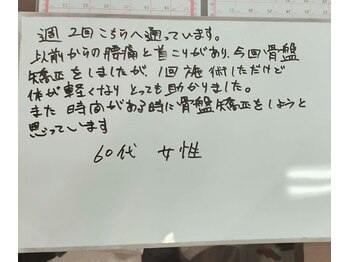 週2回こちらへ通っています。
以前からの腰痛と首こりがあり、今回骨盤
矯正をしましたが、1回施術しただけど
体が軽くなりとっても助かりました。
また時間がある時に骨盤矯正をしようと
思っています
60代 女性